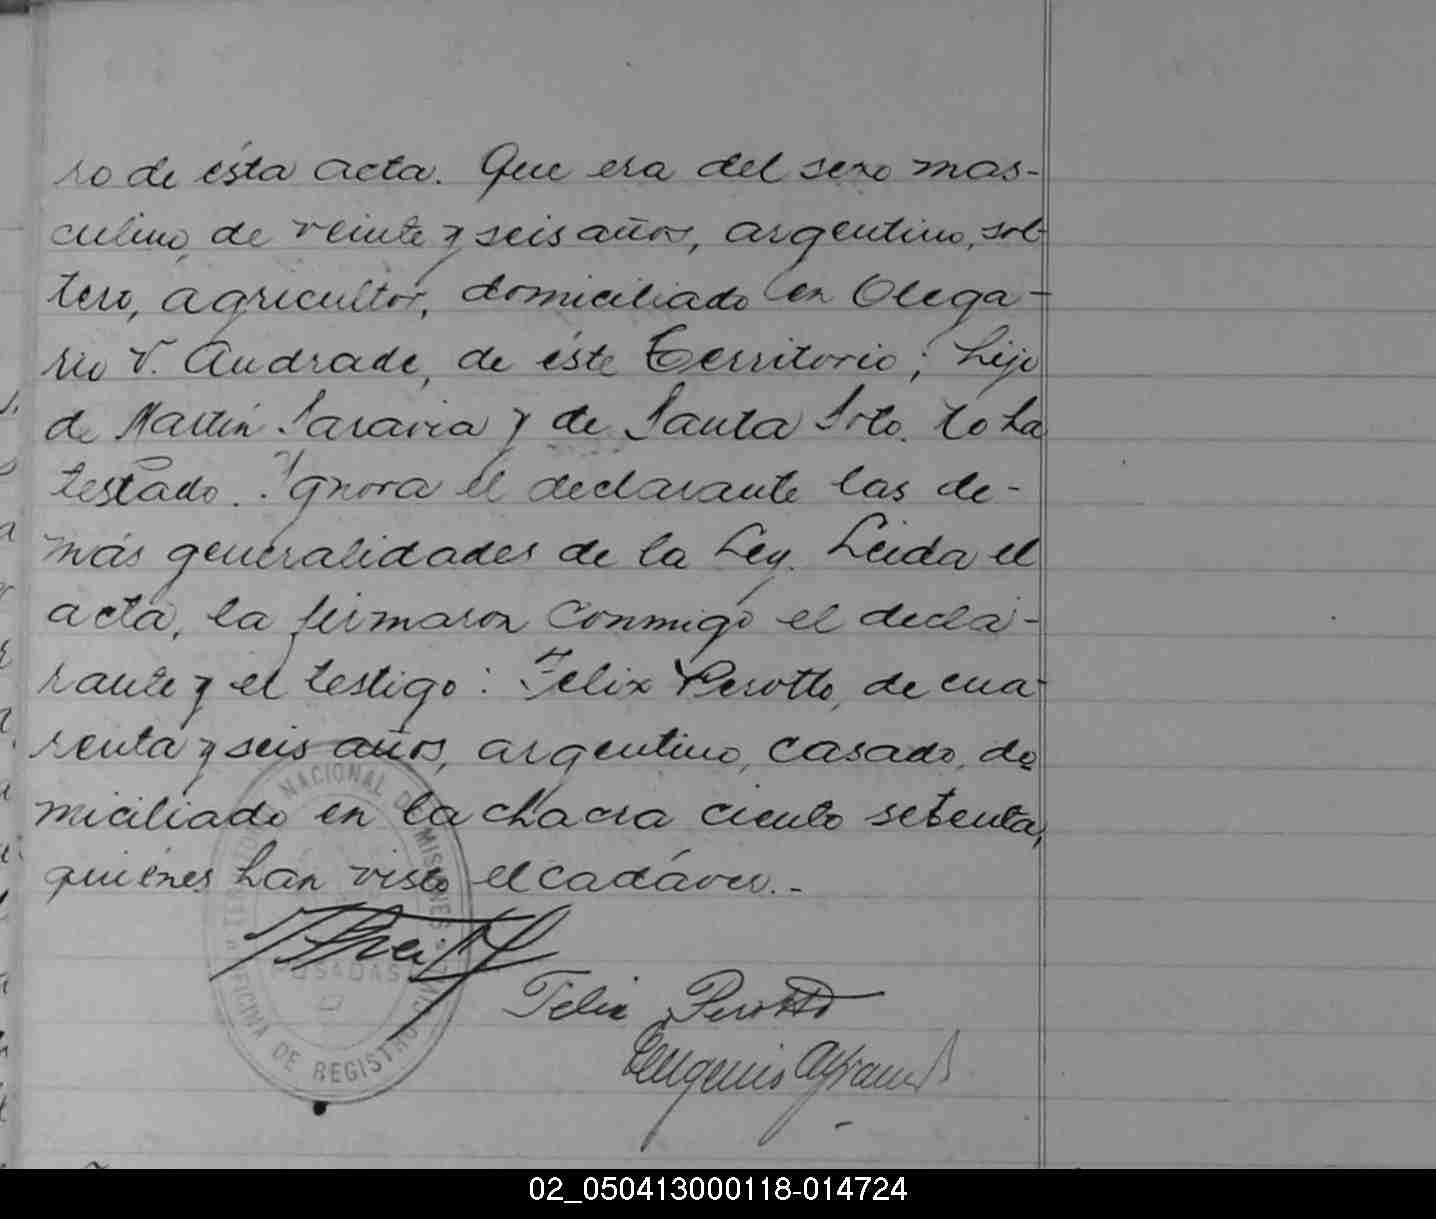 ro de ésta acta. Que era del sexo mas-
culino, de veinte y seis años, argentino, sol-
tero, agricultor, domiciliado en Olega-
rio V. Andrade, de éste Territorio; hijo
de Martín Saravia y de Santa Soto. No ha
testado. Ignora el declarante las de-
más generalidades de la Ley. Leida el
acta, la firmaron conmigo el decla-
rante y el testigo: Felix Perotto, de cua-
renta y seis años, argentino, casado, do
miciliado en la chacra ciento setenta,
quiénes han visto el cadáver.-
TERRITORIO NACIONAL DE MISIONES
POSADAS
OFICINA DE REGISTRO
Felix Perotto
Eugenio
02_050413000118-014724